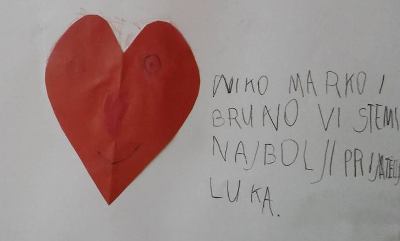 NIKO MARKO I
BRUNO VI STEMI
NAJBOLJI PRIJATELJI
LUKA.